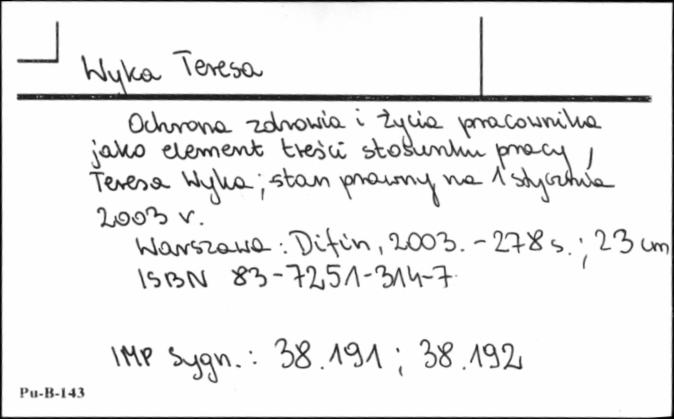 Wyka Teresa
Ochrona zdrowia i życia pracownika
jako element treści stosunku pracy /
Teresa Wyka ; stan prawny na 1 stycznia
2003 r.
Warszawa : Difin, 2003. - 278 s. ; 23 cm
ISBN 83-7251-314-7
IMP Sygn. : 38.191 ; 38.192
Pu-B-143